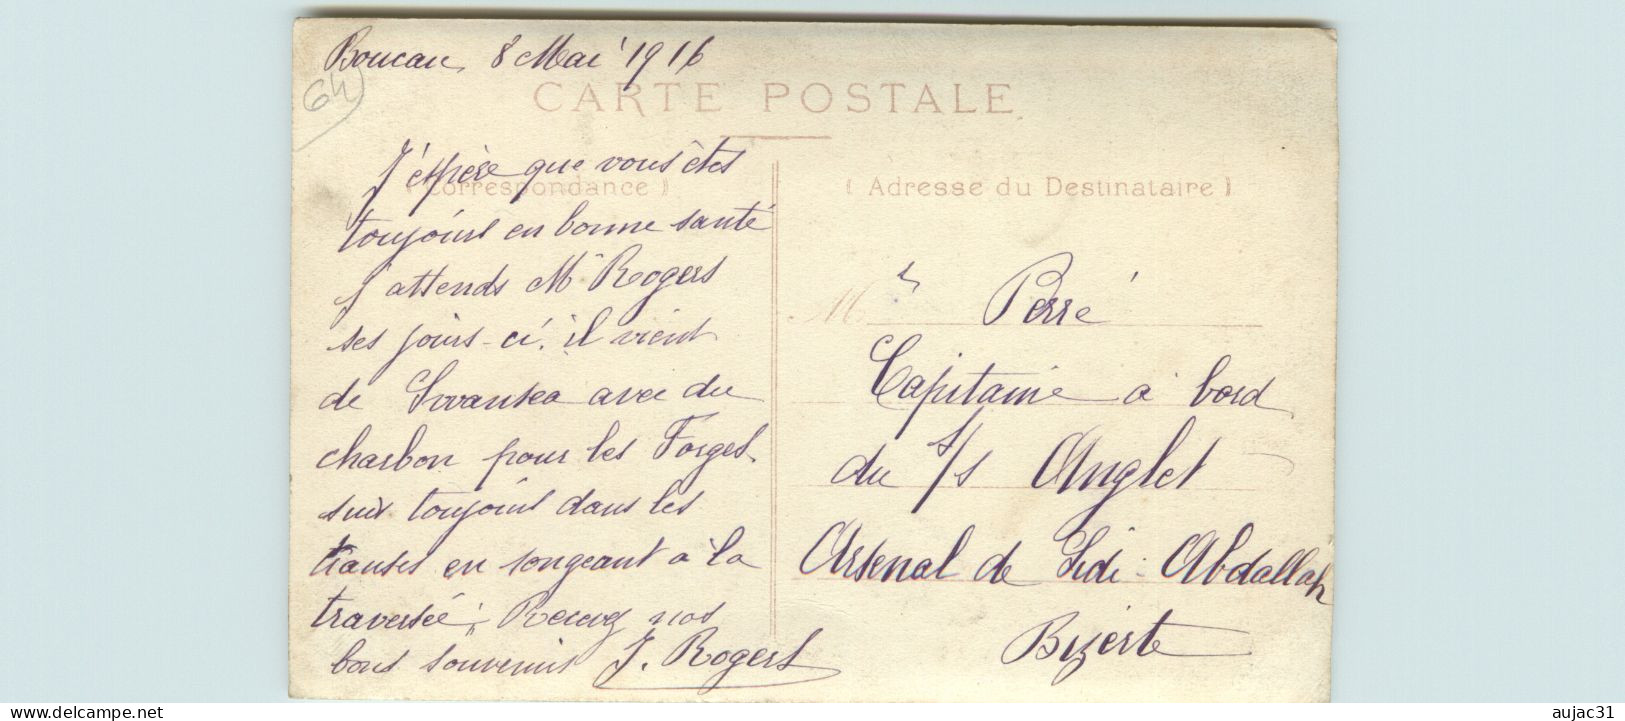 Boucau, 8 Mai 1916
64
CARTE POSTALE
(Correspondance)
J'espère que vous êtes
toujours en bonne santé
J'attends Mr Rogers
ses jours-ci. il vient
de Swansea avec du
charbon pour les Forges.
suis toujours dans les
transes en songeant a la
traversée; Recevez nos
bons souvenirs J. Rogers
(Adresse du Destinataire)
Mr Perré
Capitaine a bord
du s/s Anglet
Arsenal de Sidi-Abdallah
Bizerte
www.delcampe.net
aujac31